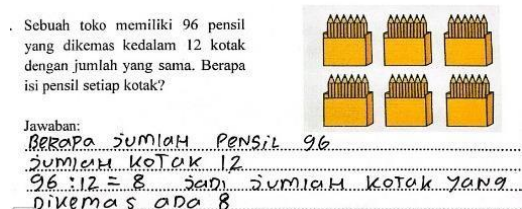 Sebuah toko memiliki 96 pensil
yang dikemas kedalam 12 kotak
dengan jumlah yang sama. Berapa
isi pensil setiap kotak?
Jawaban:
BERAPA JUMlAH PENSiL 96
JUMlAH KOTAK 12
96 : 12 = 8 JaDi JUMlAH KOTAK YANG
DiKEMAS ADA 8